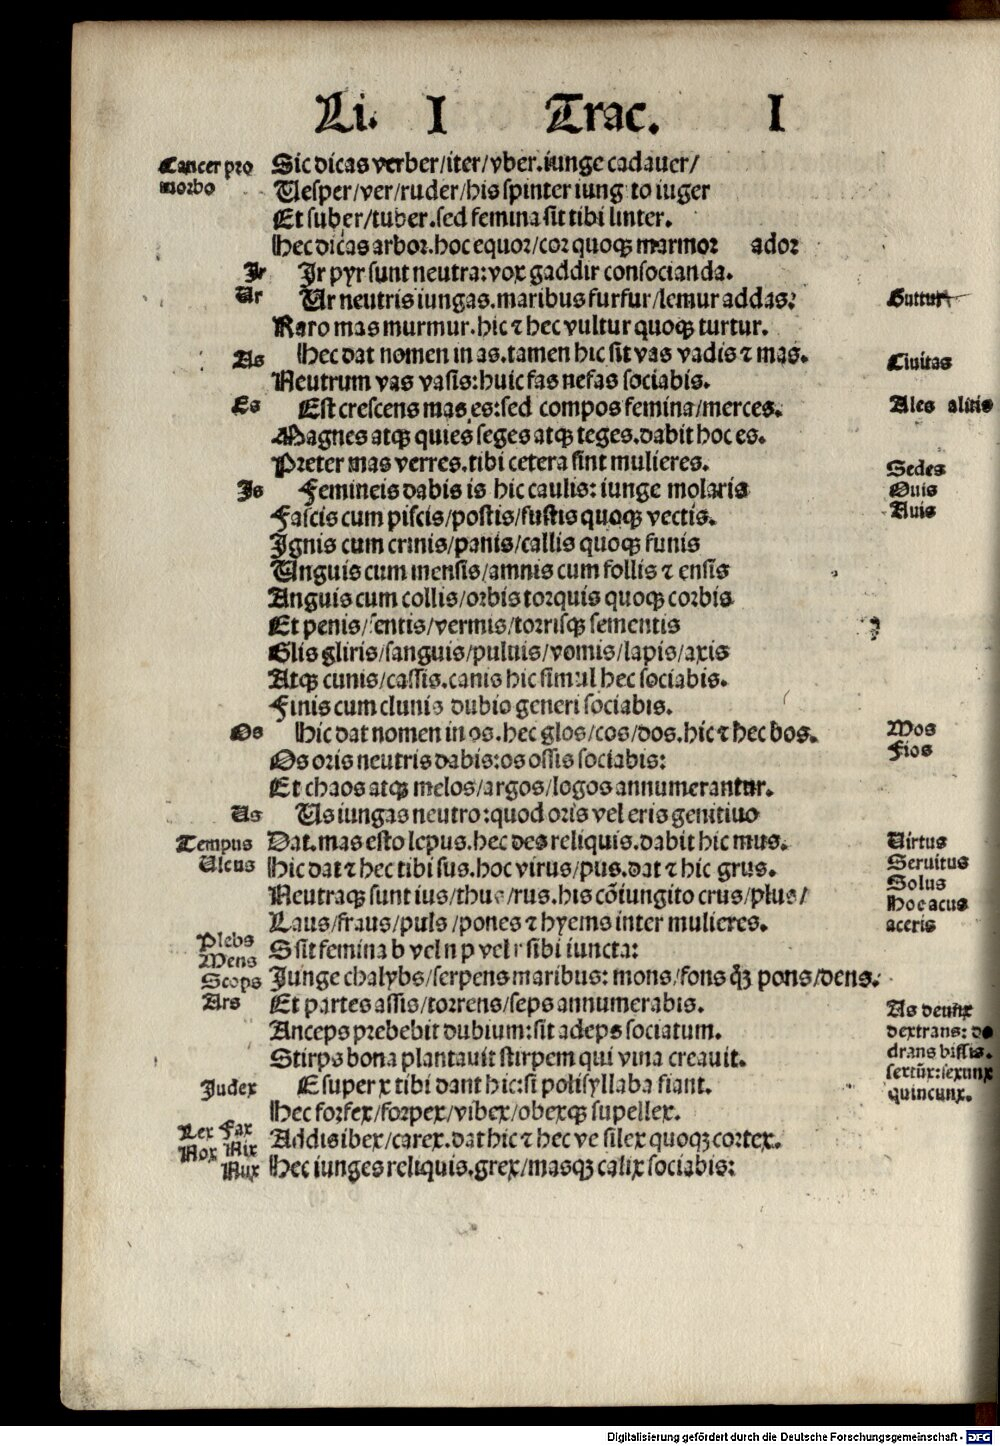 Li. I Trac. I
Cancer pro Sic dicas verber/iter/vber.iunge cadauer/
morbo Vesper/ver/ruder/his spinter iungito iuger
Et suber/tuber.sed femina sit tibi linter.
Hec dicas arbor.hoc equor/cor quoqꝫ marmor ador
Ir Ir pyr sunt neutra:vox gaddir consocianda.
Ur Ur neutris iungas.maribus furfur/lemur addas: Guttur
Raro mas murmur.hic ⁊ hec vultur quoqꝫ turtur.
As Hec dat nomen in as.tamen hic sit vas vadis ⁊ mas. Ciuitas
Neutrum vas vasis:huic fas nefas sociabis.
Es Est crescens mas es:sed compos femina/merces. Ales alitis
Magnes atqꝫ quies seges atqꝫ teges.dabit hoc es.
Preter mas verres.tibi cetera sint mulieres. Sedes
Is Femineis dabis is hic caulis:iunge molaris Ouis
Fascis cum piscis/postis/fustis quoqꝫ vectis. Auis
Ignis cum crinis/panis/callis quoqꝫ funis
Unguis cum mensis/amnis cum follis ⁊ ensis
Anguis cum collis/orbis torquis quoqꝫ corbis
Et penis/sentis/vermis/torrisqꝫ sementis
Glis gliris/sanguis/puluis/vomis/lapis/axis
Atqꝫ cunis/cassis.canis hic simul hec sociabis.
Finis cum clunis dubio generi sociabis.
Os Hic dat nomen in os.hec glos/cos/dos.hic ⁊ hec bos. Mos
Os oris neutris dabis:os ossis sociabis: Fios
Et chaos atqꝫ melos/argos/logos annumerantur.
Us Us iungas neutro:quod oris vel eris genitiuo
Tempus Dat.mas esto lepus.hec des reliquis.dabit hic mus. Uirtus
Ulcus Hic dat ⁊ hec tibi sus.hoc virus/pus.dat ⁊ hic grus. Seruitus
Neutraqꝫ sunt ius/thus/rus.his cōiungito crus/plus/ Solus
Hoc acus
Laus/fraus/puls/pones ⁊ hyems inter mulieres. aceris
Plebs S sit femina b vel n p vel r sibi iuncta:
Mens
Scops Iunge chalybs/serpens maribus: mons/fons qꝫ̄ pons/dens.
Ars Et partes assis/torrens/seps annumerabis. As deunx
Anceps prebebit dubium:sit adeps sociatum. dextrans: do
Stirps bona plantauit stirpem qui vina creauit. drans bissis.
Iudex E super x tibi dant hic:si polisyllaba fiant. sextūx:sexunx
quincunx.
Hec forfex/forpex/vibex/obexqꝫ supellex.
Lex Fax Addis ibex/carex.dat hic ⁊ hec ve silex quoqꝫ cortex.
Nox Nix
Nux Hec iunges reliquis.grex/masqꝫ calix sociabis:
Digitalisierung gefördert durch die Deutsche Forschungsgemeinschaft - DFG